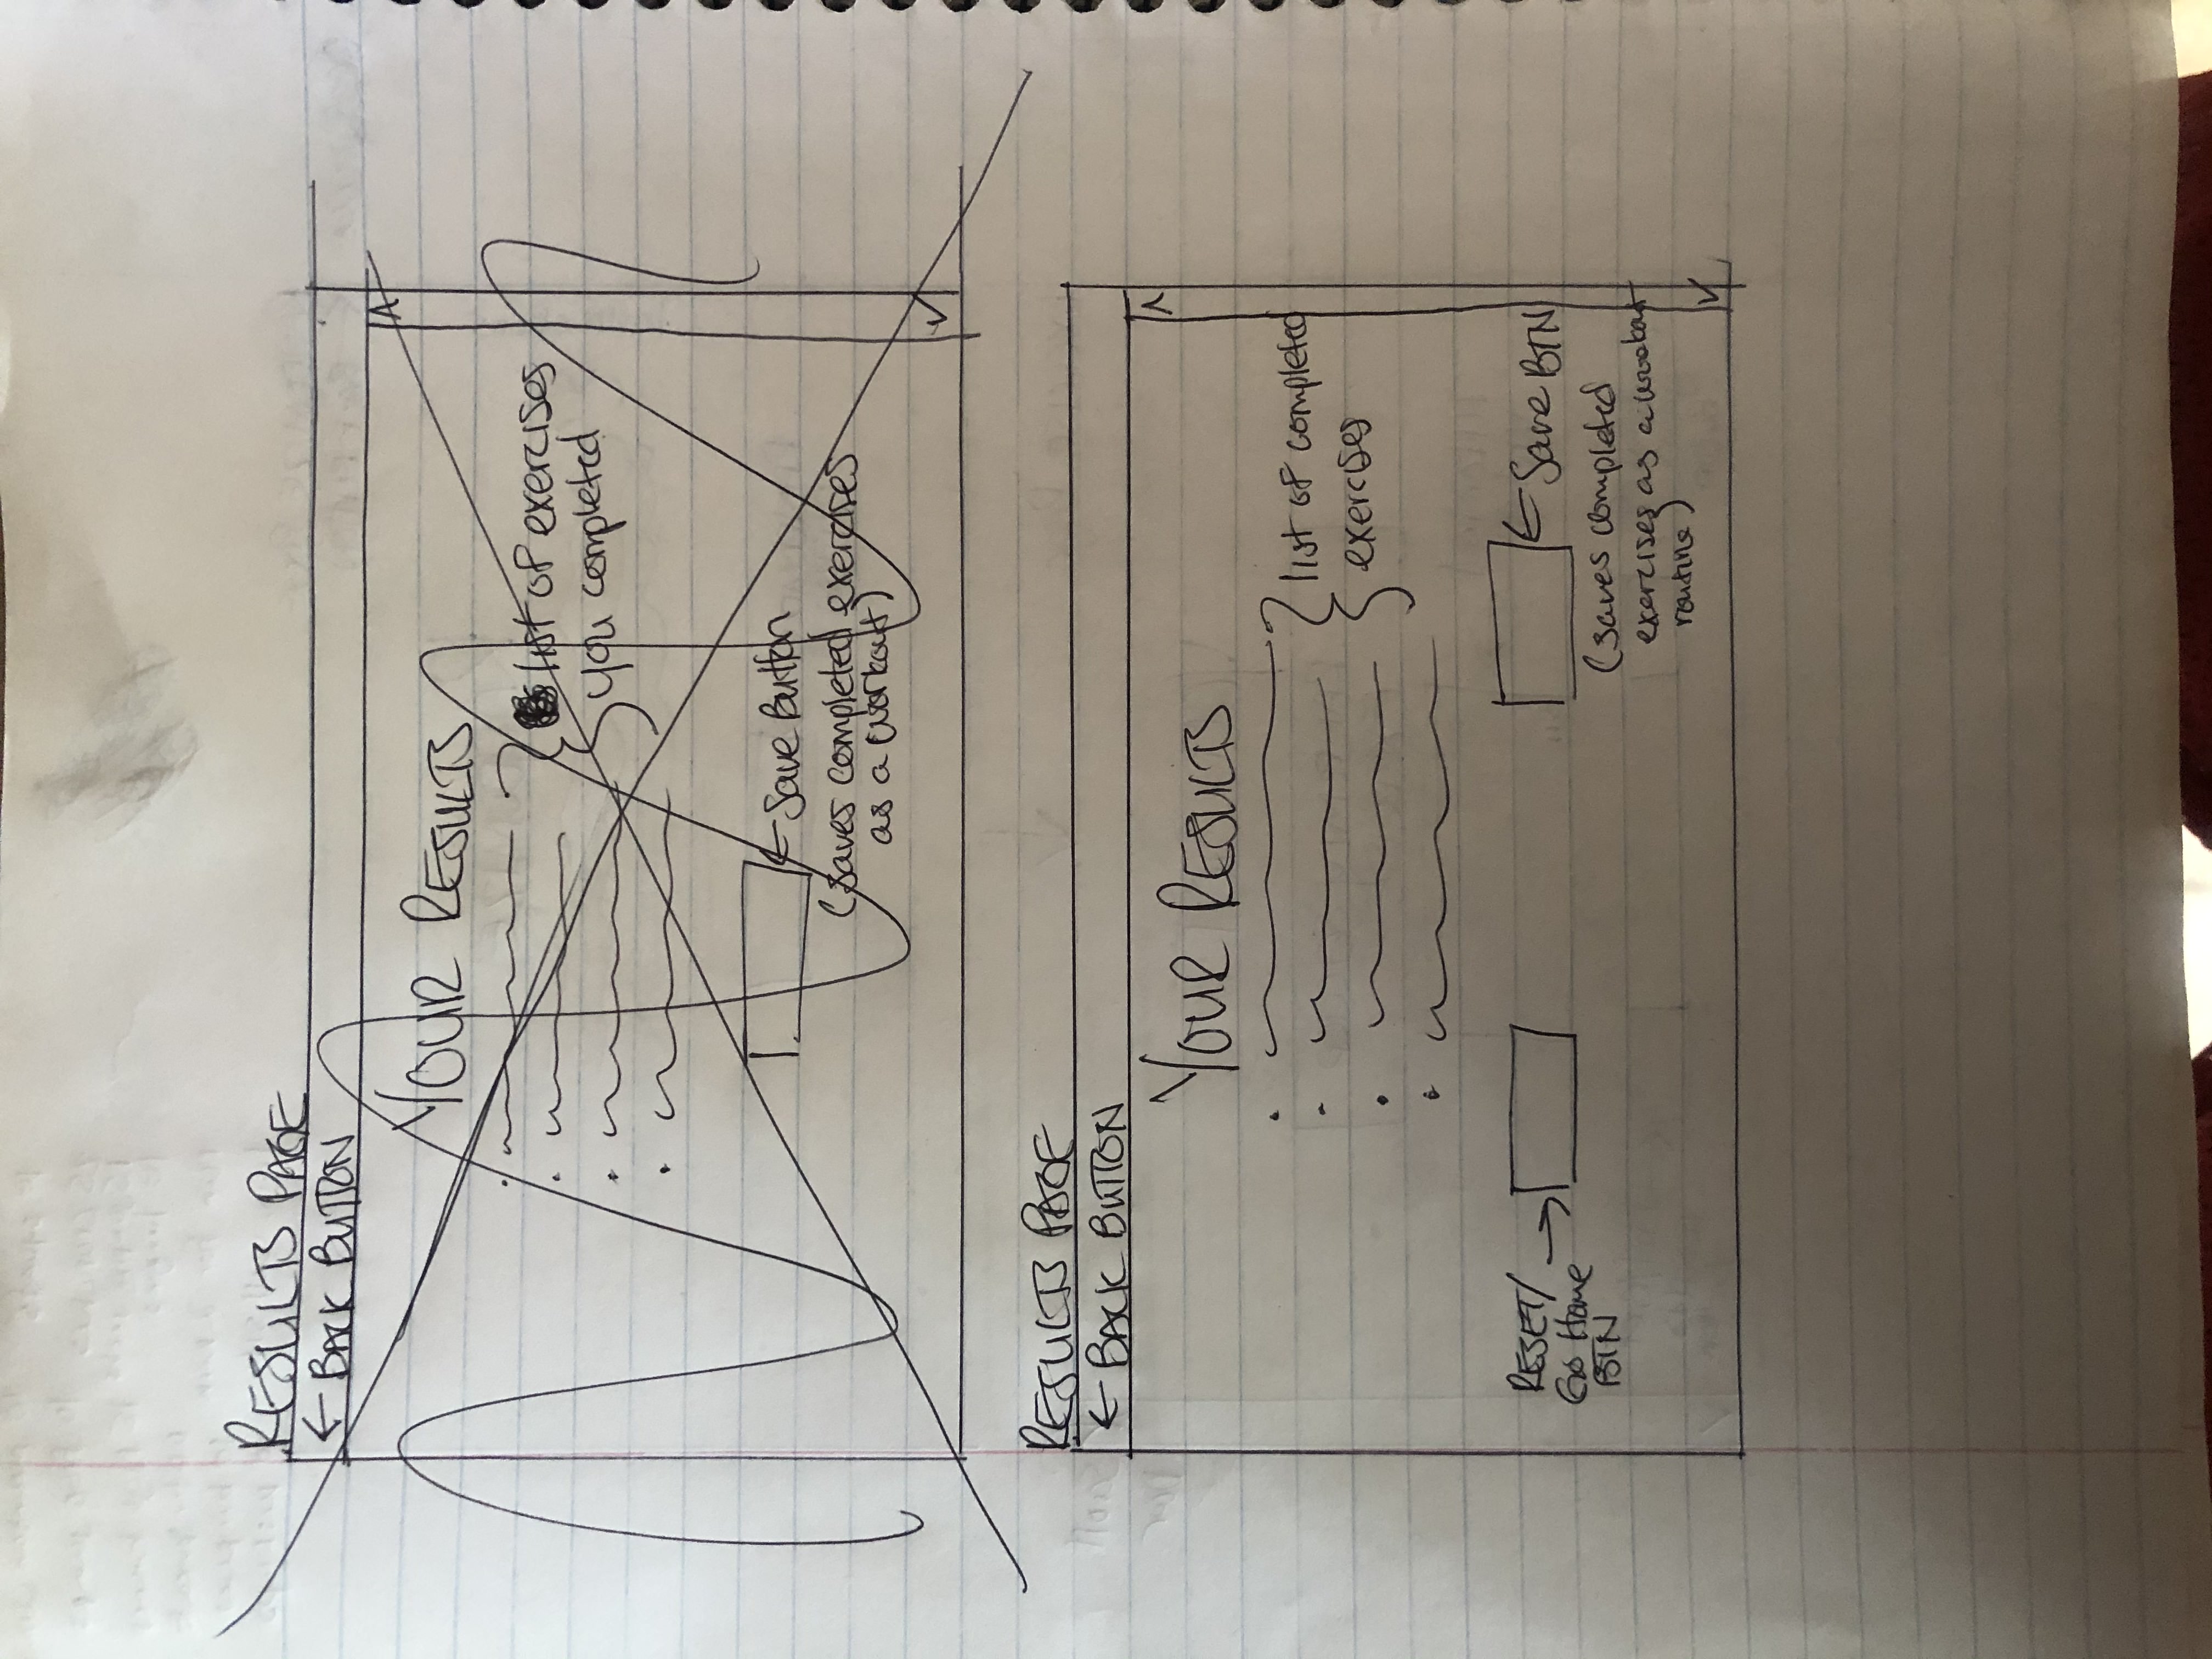 RESULTS PAGE
← BACK BUTTON
YOUR RESULTS
list of exercises
you completed
← Save Button
(saves completed exercises
as a workout)
RESULTS PAGE
← BACK BUTTON
YOUR RESULTS
list of completed
exercises
RESET/ →
Go Home
BTN
← Save BTN
(saves completed
exercises as a workout
routine)